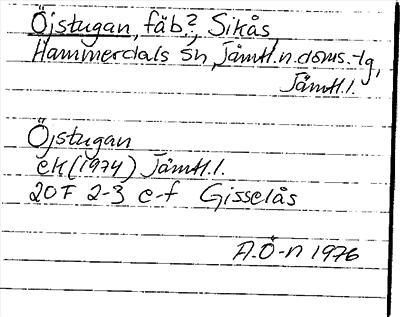 Öjstugan, fäb?, Sikås,
Hammerdals sn, Jämtl.n.doms.tg,
Jämtl.l.
Öjstugan
ek (1974) Jämtl.l.
20F 2-3 e-f Gisselås
A.Ö-n 1976